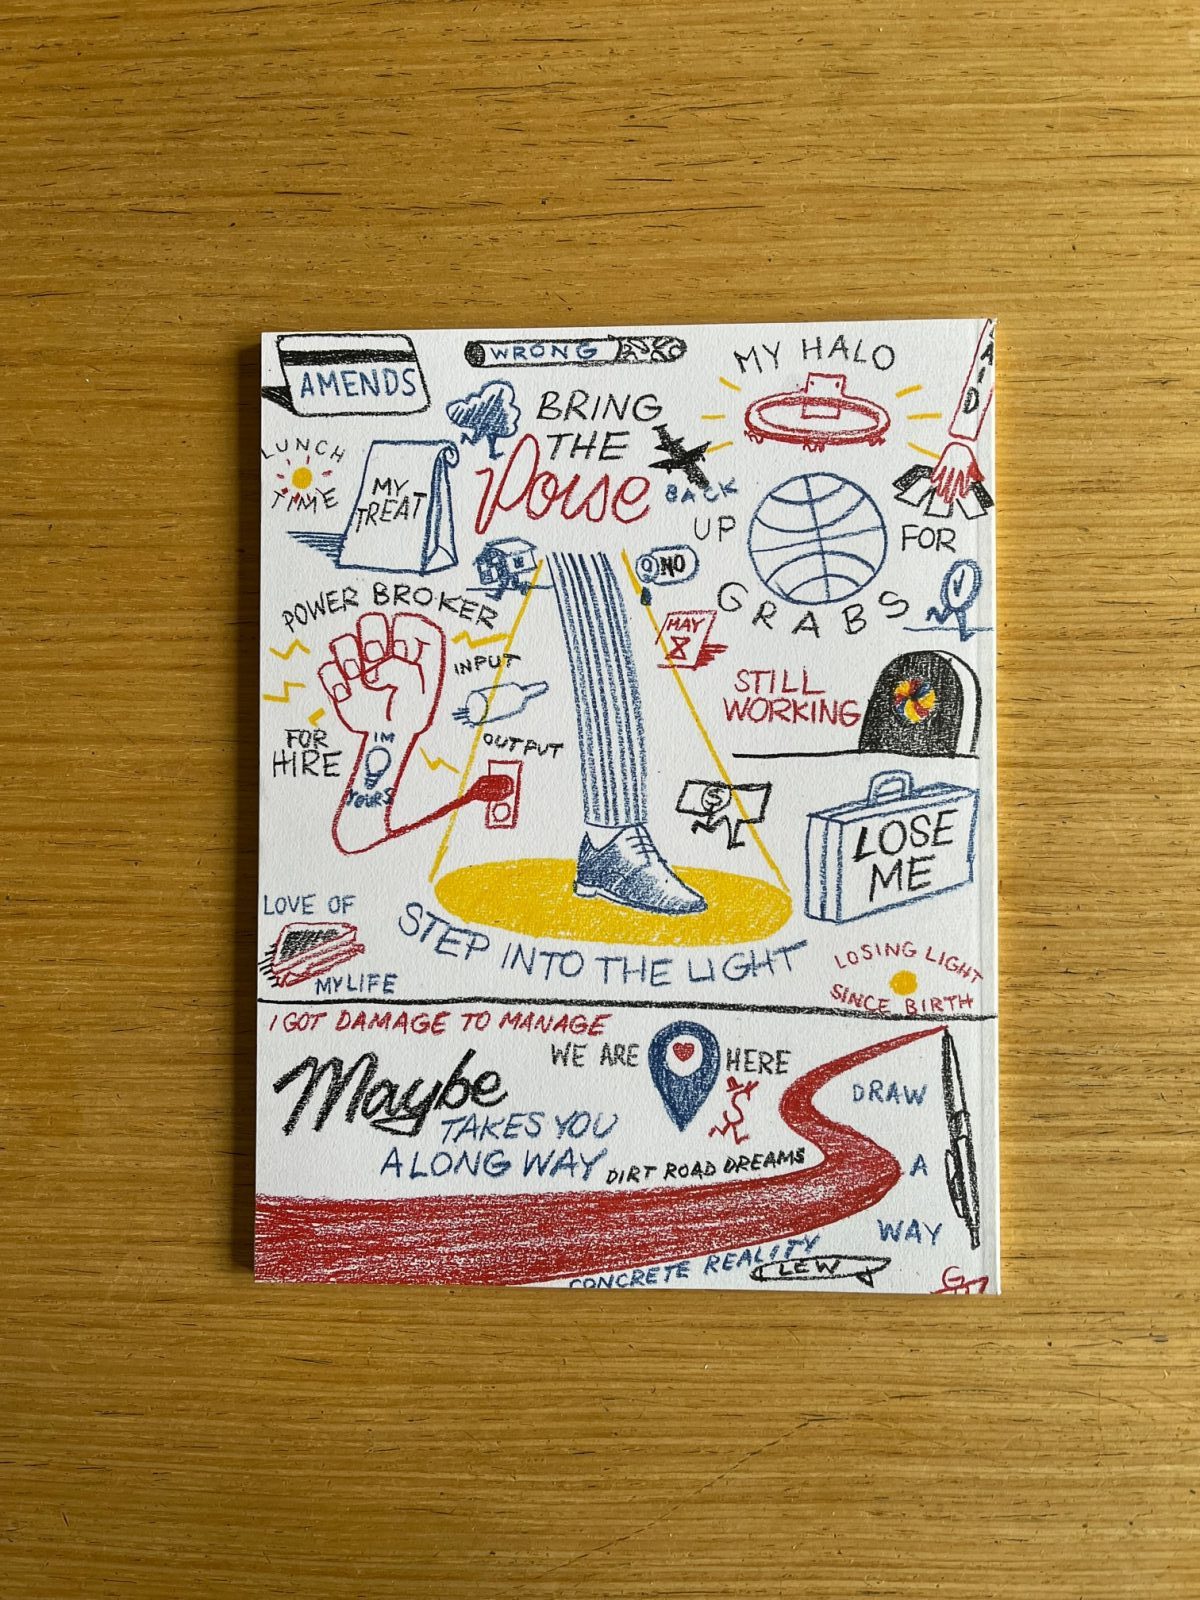 AMENDS
WRONG
MY HALO
LUNCH
TIME
MY
TREAT
BRING
THE
Poise
BACK
UP
FOR
GRABS
NO
POWER BROKER
FOR
HIRE
IM
YOURS
INPUT
OUTPUT
MAY
8
STILL
WORKING
$
LOSE
ME
LOVE OF
MY LIFE
STEP INTO THE LIGHT
LOSING LIGHT
SINCE BIRTH
I GOT DAMAGE TO MANAGE
WE ARE
HERE
Maybe
TAKES YOU
A LONG WAY
DIRT ROAD DREAMS
DRAW
A
WAY
CONCRETE REALITY
LEW